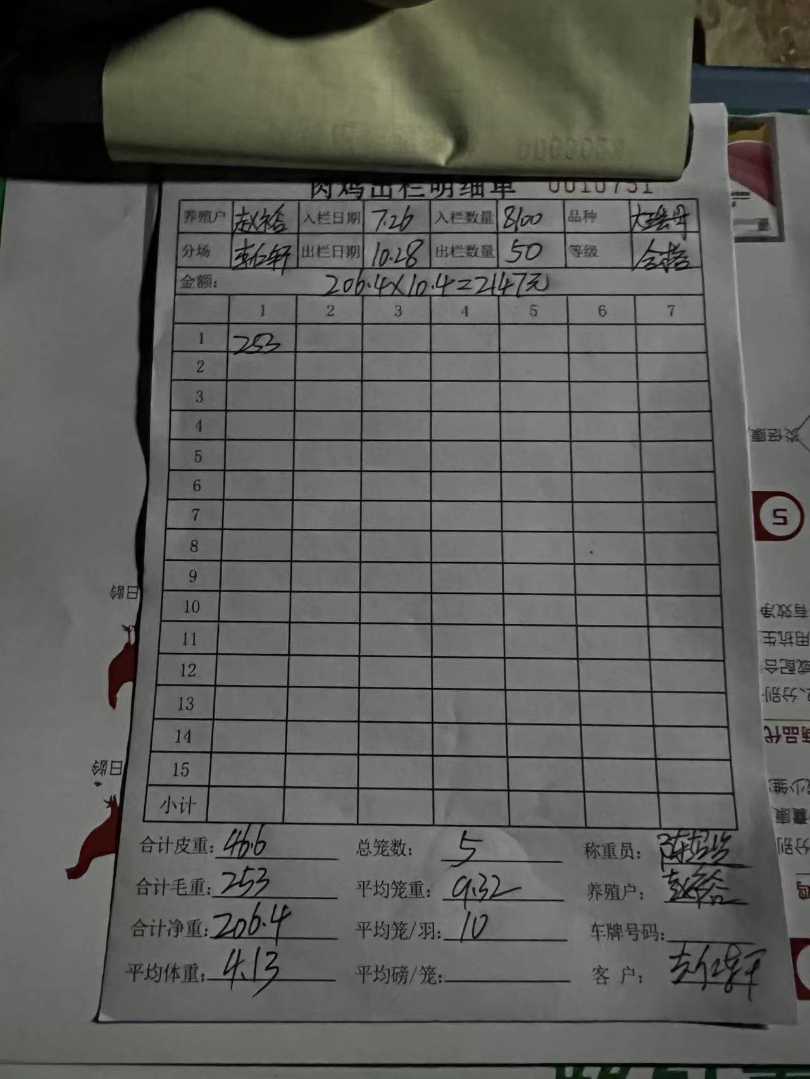 肉鸡出栏明细单 0010751
养殖户 赵裕合 入栏日期 7.26 入栏数量 8100 品种
分场 出栏日期 10.28 出栏数量 50 等级 合格
金额: 206.4×10.4=2147元
1 2 3 4 5 6 7
1 253
2
3
4
5
6
7
8
9
10
11
12
13
14
15
小计
合计皮重: 46.6 总笼数: 5 称重员:
合计毛重: 253 平均笼重: 9.32 养殖户:
合计净重: 206.4 平均笼/羽: 10 车牌号码:
平均体重: 4.13 平均磅/笼: 客户:
5
日龄
日龄
有效净
用抗生
或配合